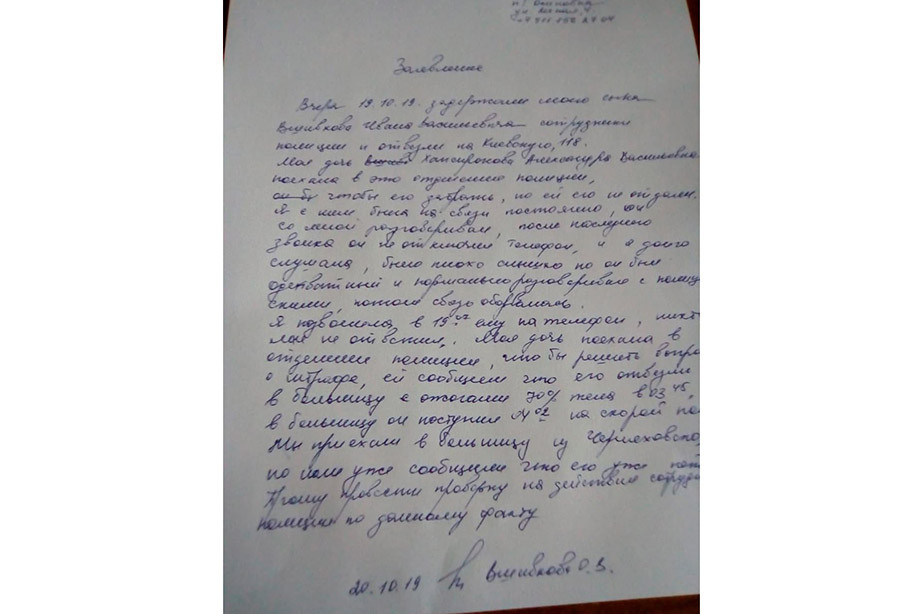 Заявление
Вчера 19.10.19. задержали моего сына
Вшивкова Ивана Васильевича сотрудники
полиции и отвезли на Киевскую, 118.
Моя дочь Хапсирокова Александра Васильевна
поехала в это отделение полиции,
чтобы его забрать, но ей его не отдали.
Я с ним была на связи постоянно, он
со мной разговаривал, после последнего
звонка он не отключил телефон, и я долго
слушала, было плохо слышно но он был
адекватный и нормально разговаривал с полицей
скими, потом связь оборвалась.
Я позвонила в 19 ему на телефон, никто
мне не ответил. Моя дочь поехала в
отделение полиции, чтобы решить вопрос
о штрафе, ей сообщили что его отвезли
в больницу с ожогами 70% тела в 03 45,
в больницу он поступил на скорой
Мы приехали в больницу из Черняховска,
но нам уже сообщили что его уже нет
Прошу провести проверку на действия сотруд
полиции по данному факту
20.10.19 Вшивкова О.В.